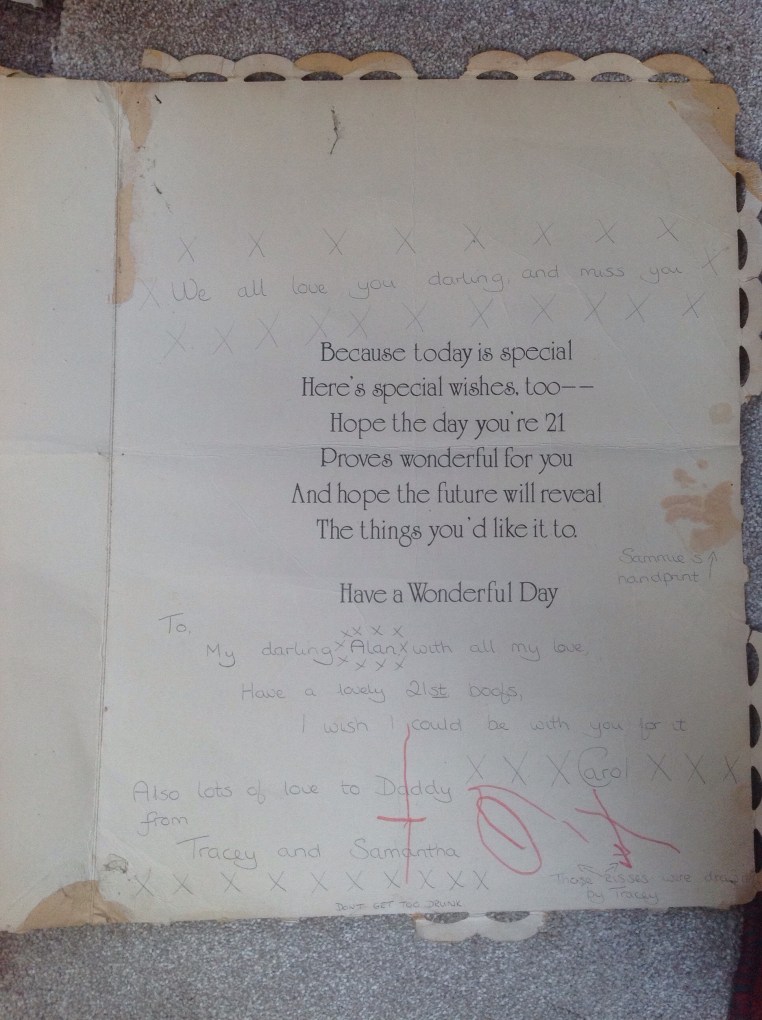 X X X X X X X X
X We all love you darling, and miss you X
X X X X X X X X X X X
Because today is special
Here's special wishes, too--
Hope the day you're 21
Proves wonderful for you
And hope the future will reveal
The things you'd like it to.
Sammie's ↑
handprint
Have a Wonderful Day
To,
x x x x
My darling x Alan x with all my love,
x x x x
Have a lovely 21st boofs,
I wish I could be with you for it
X X X Carol X X X
Also lots of love to Daddy
from
Tracey and Samantha
X X X X X X X X X X
Those kisses were drawn
by Tracey
DON'T GET TOO DRUNK